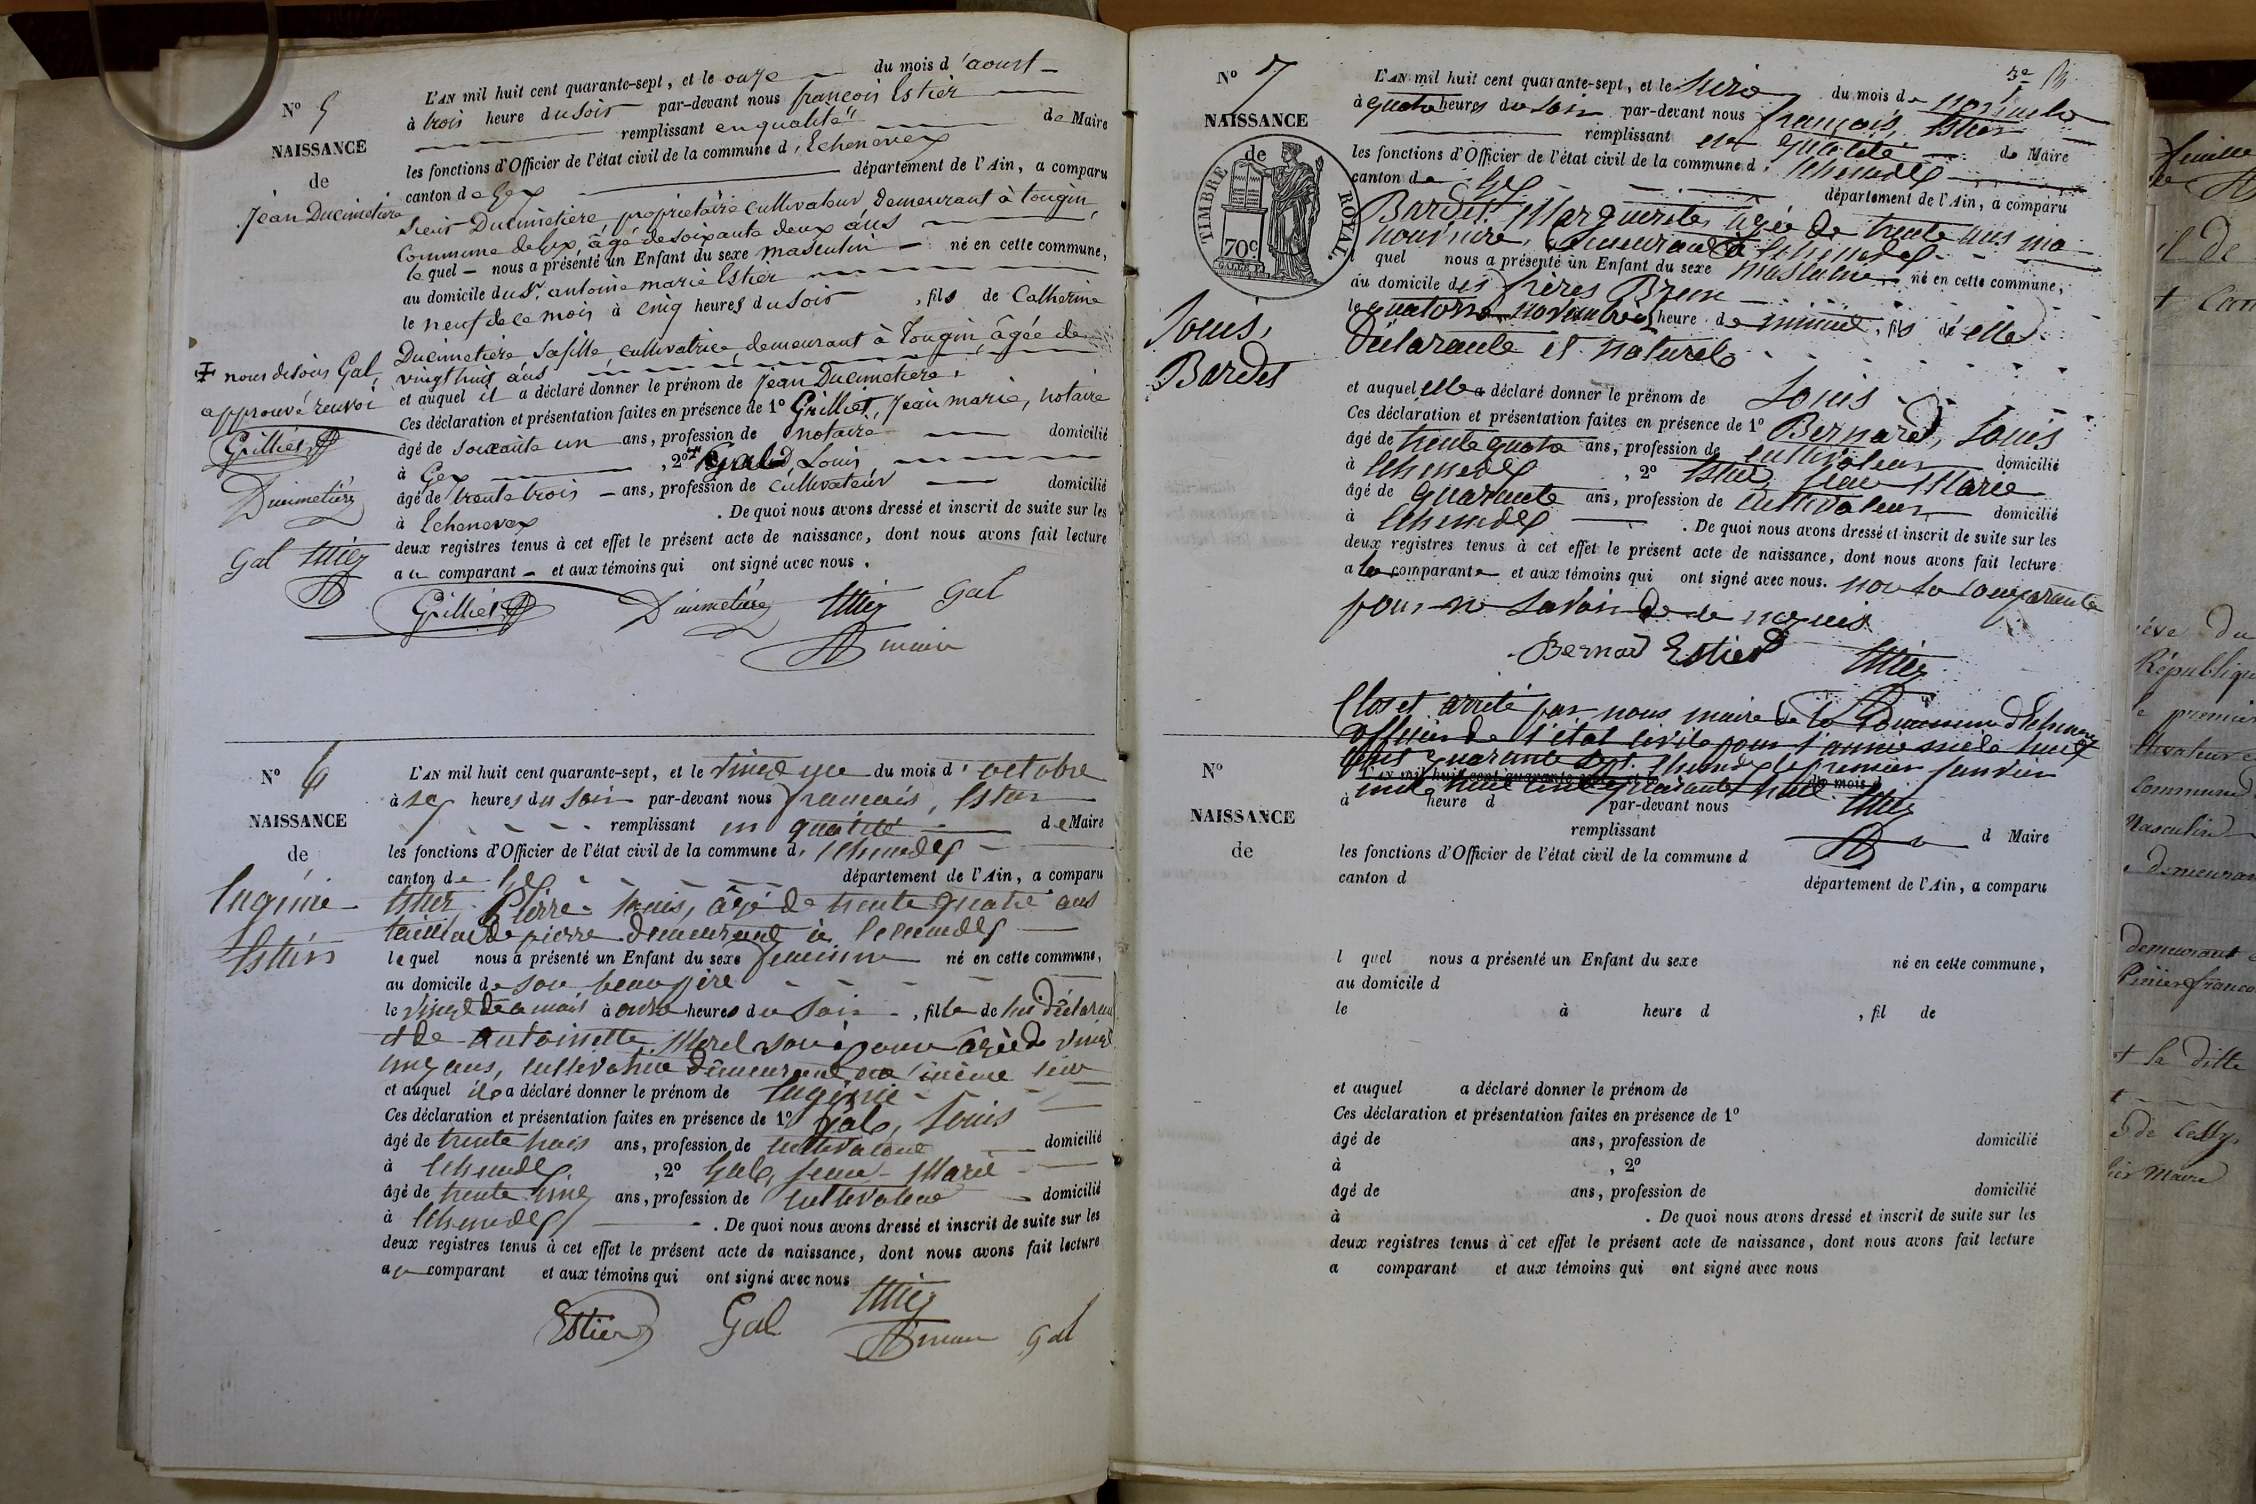 N° 5
NAISSANCE
de
Jean Ducimetière
L'AN mil huit cent quarante-sept, et le onze du mois d'aoust
à trois heure du soir par-devant nous françois Estier
remplissant en qualité de Maire
les fonctions d'Officier de l'état civil de la commune d'Echenevex
canton de Gex département de l'Ain, a comparu
Sieur Ducimetière propriétaire cultivateur demeurant à tougin,
Commune de Gex, âgé de soixante deux ans
le quel nous a présenté un Enfant du sexe masculin né en cette commune,
au domicile du Sr. antoine marie Estier
le neuf de ce mois à cinq heures du soir, fils de Catherine
Ducimetière sa fille, cultivatrice, demeurant à Tougin, âgée de
vingt huit ans
et auquel il a déclaré donner le prénom de Jean Ducimetière.
Ces déclaration et présentation faites en présence de 1° Grilliet, Jean marie, notaire
âgé de soixante un ans, profession de notaire domicilié
à Gex, 2° Louis
âgé de trente trois ans, profession de cultivateur domicilié
à Echenevex. De quoi nous avons dressé et inscrit de suite sur les
deux registres tenus à cet effet le présent acte de naissance, dont nous avons fait lecture
au comparant et aux témoins qui ont signé avec nous.
nous disons Gal,
approuvé renvoi
Grilliet
Ducimetière
Gal Estier
Grilliet Ducimetière Estier Gal
maire
N° 6
NAISSANCE
de
Eugénie
Estier
L'AN mil huit cent quarante-sept, et le vingt un du mois d'octobre
à heures du soir par-devant nous français, Estier
remplissant en qualité de Maire
les fonctions d'Officier de l'état civil de la commune d'Echenevex
canton de Gex département de l'Ain, a comparu
Estier Pierre Louis, âgé de trente quatre ans
tailleur de pierre demeurant à Echenevex
le quel nous a présenté un Enfant du sexe féminin né en cette commune,
au domicile de son beau père
le vingt de ce mois à onze heures du soir, fille de lui déclarant
et de Antoinette Morel son épouse âgée de vingt
cinq ans, cultivatrice demeurant au même lieu
et auquel il a déclaré donner le prénom de Eugénie
Ces déclaration et présentation faites en présence de 1° Gal, Louis
âgé de trente trois ans, profession de cultivateur domicilié
à Echenevex, 2° Gal, Jean Marie
âgé de trente cinq ans, profession de cultivateur domicilié
à Echenevex. De quoi nous avons dressé et inscrit de suite sur les
deux registres tenus à cet effet le présent acte de naissance, dont nous avons fait lecture
au comparant et aux témoins qui ont signé avec nous
Estier Gal Estier maire Gal
N° 7
NAISSANCE
de
TIMBRE ROYAL
70c.
Louis,
Bardet
3e
L'AN mil huit cent quarante-sept, et le seize du mois de novembre
à quatre heures du soir par-devant nous français, Estier
remplissant en qualité de Maire
les fonctions d'Officier de l'état civil de la commune d'Echenevex
canton de Gex département de l'Ain, a comparu
Bardet Marguerite, âgée de trente ans
demeurant à Echenevex
quel nous a présenté un Enfant du sexe masculin né en cette commune,
au domicile des frères Brun
le quatorze novembre heure de minuit, fils d'elle
Déclarante et naturel
et auquel elle a déclaré donner le prénom de Louis
Ces déclaration et présentation faites en présence de 1° Bernard, Louis
âgé de trente quatre ans, profession de cultivateur domicilié
à Echenevex, 2° Estier, Jean Marie
âgé de quarante ans, profession de cultivateur domicilié
à Echenevex. De quoi nous avons dressé et inscrit de suite sur les
deux registres tenus à cet effet le présent acte de naissance, dont nous avons fait lecture
a la comparante et aux témoins qui ont signé avec nous. non la comparante
pour ne savoir de ce requis
Bernard Estier Estier
Clos et arrêté par nous maire de la Commune d'Echenevex
officier de l'état civil pour l'année mil huit
cents quarante sept. Echenevex le premier janvier
mil huit cent quarante huit
Estier
N°
NAISSANCE
de
L'AN mil huit cent quarante-sept, et le du mois d
à heure d par-devant nous
remplissant d Maire
les fonctions d'Officier de l'état civil de la commune d
canton d département de l'Ain, a comparu
l quel nous a présenté un Enfant du sexe né en cette commune,
au domicile d
le à heure d, fil de
et auquel a déclaré donner le prénom de
Ces déclaration et présentation faites en présence de 1°
âgé de ans, profession de domicilié
à, 2°
âgé de ans, profession de domicilié
à. De quoi nous avons dressé et inscrit de suite sur les
deux registres tenus à cet effet le présent acte de naissance, dont nous avons fait lecture
a comparant et aux témoins qui ont signé avec nous
feuille
République
premier
Commune
Masculin
demeurant
demeurant
la ditte
Maire